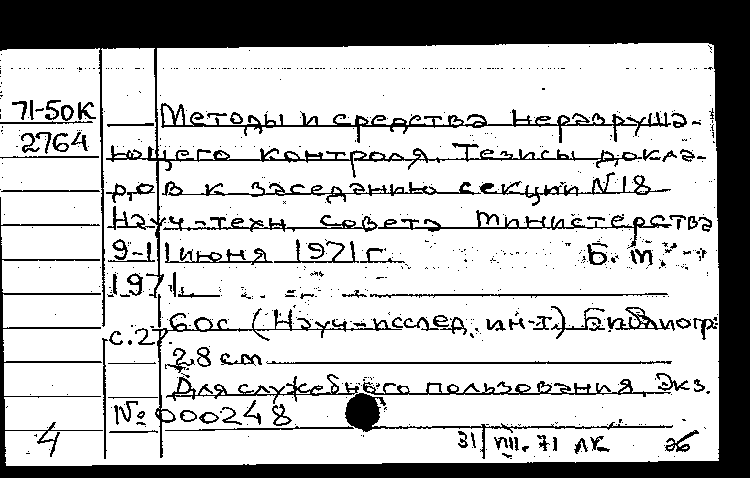 71-50К
2764
Методы и средства неразруша-
ющего контроля. Тезисы докла-
дов к заседанию секции №18
Науч.-техн. совета министерства
9-11 июня 1971 г. Б. м.
1971.
60с (Науч-исслед. ин-т.) Библиогр:
с.27.
28 см
Для служебного пользования. Экз.
№ 000248
4
31/VII.71 ЛК